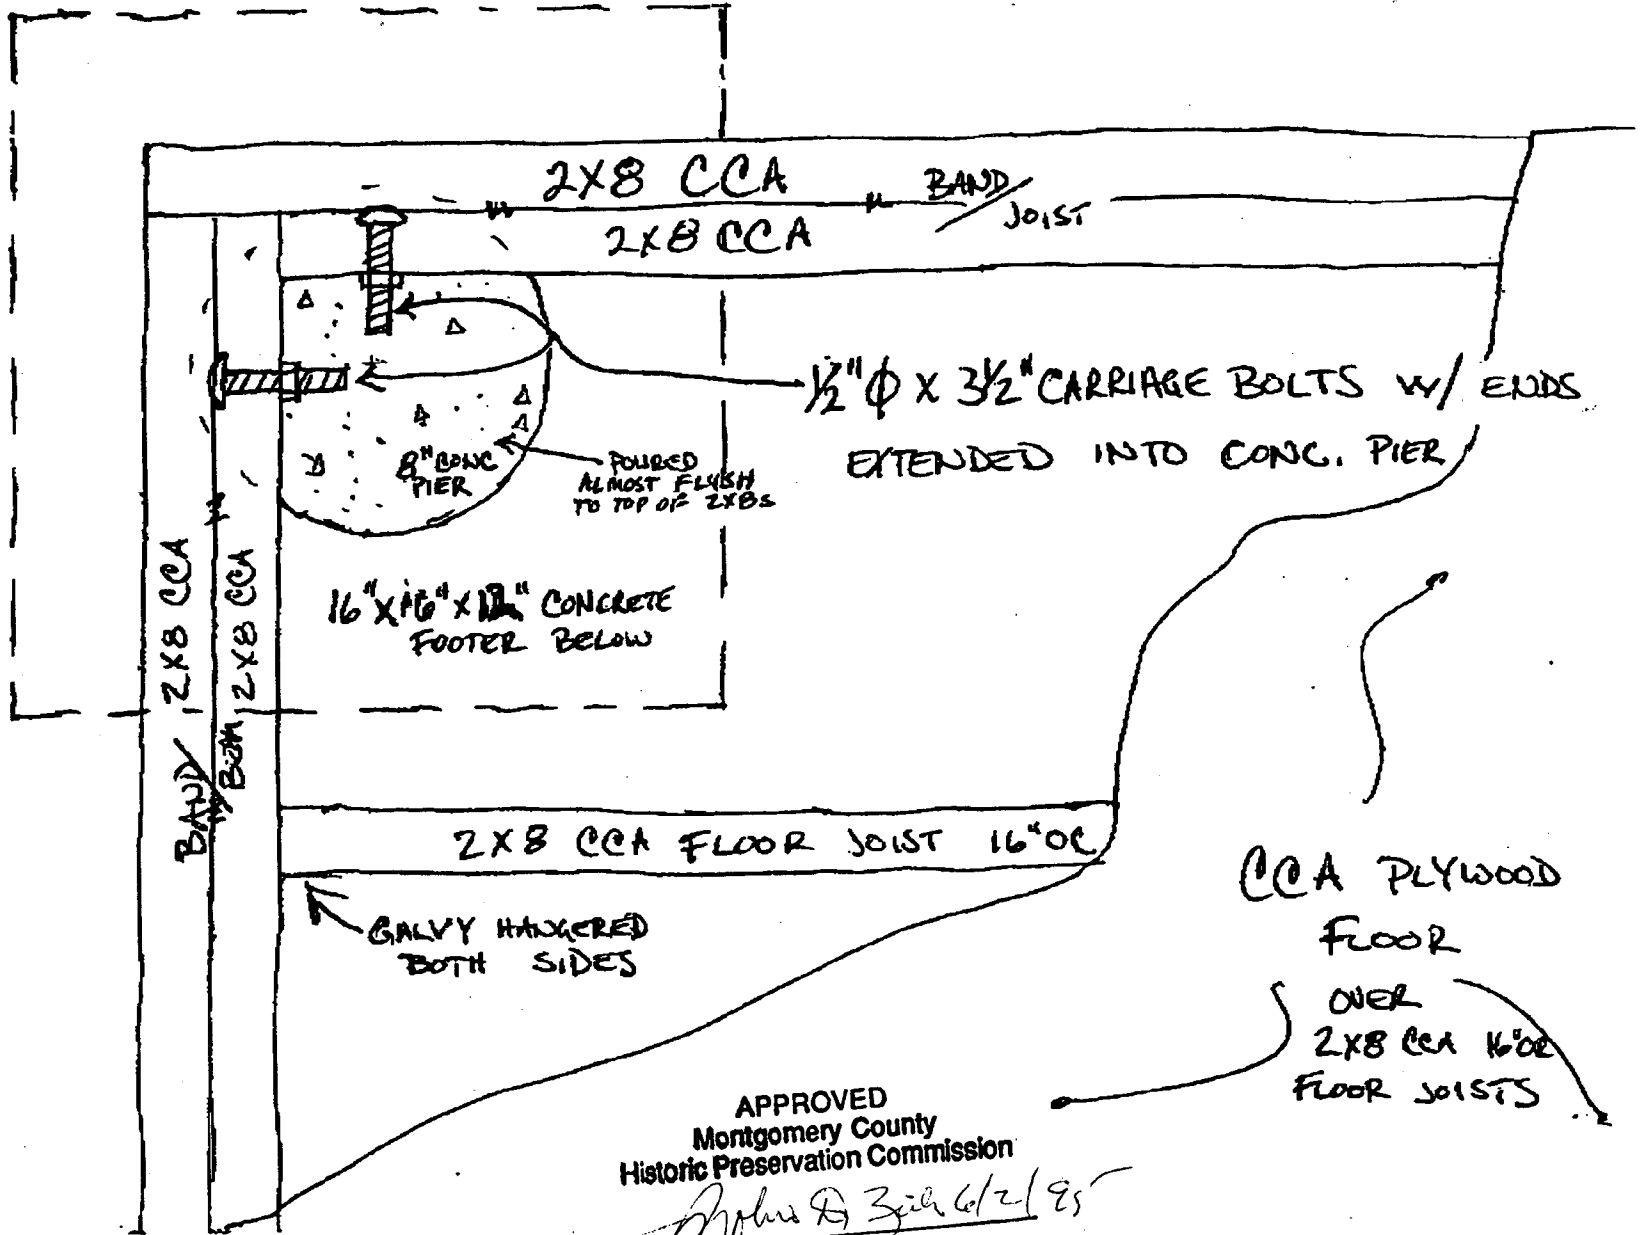 2X8 CCA
BAND/
JOIST
2X8 CCA
1/2"ϕ X 3 1/2" CARRIAGE BOLTS W/ ENDS
EXTENDED INTO CONC. PIER
8" CONC
PIER
POURED
ALMOST FLUSH
TO TOP OF 2X8s
16" X 16" X 12" CONCRETE
FOOTER BELOW
2X8 CCA
2X8 CCA
BAND/
2X8 CCA FLOOR JOIST 16" OC
GALVY HANGERED
BOTH SIDES
CCA PLYWOOD
FLOOR
OVER
2X8 CCA 16" OC
FLOOR JOISTS
APPROVED
Montgomery County
Historic Preservation Commission
6/2/95